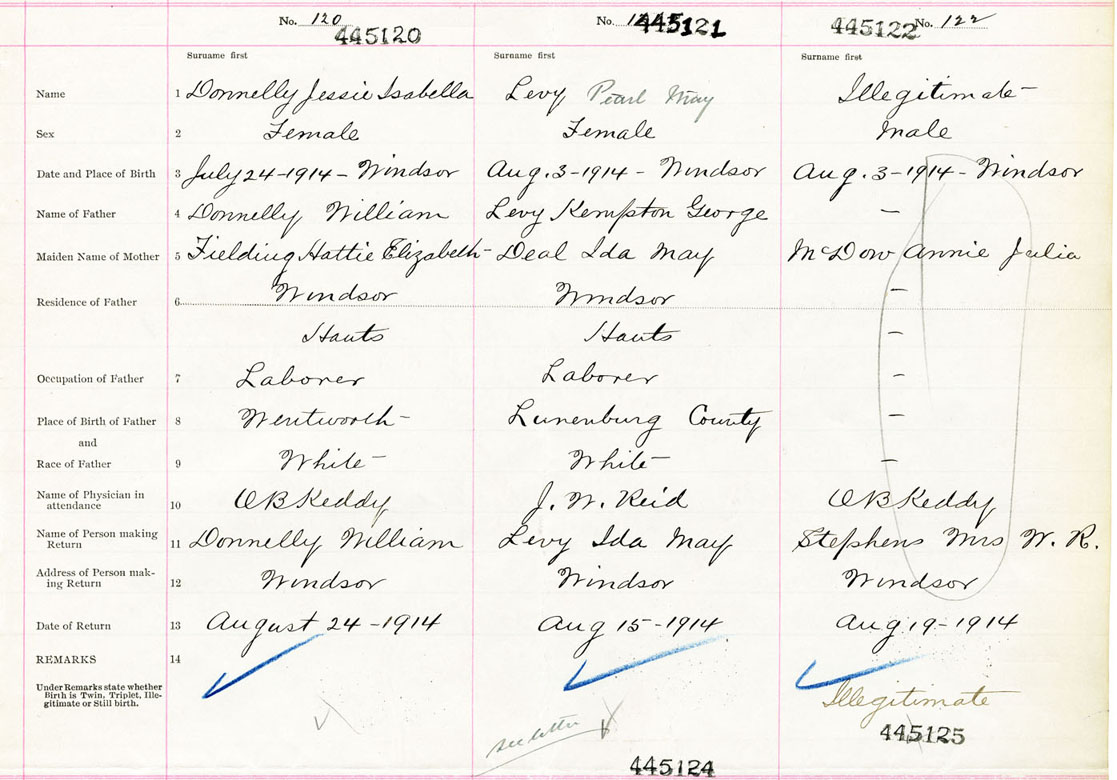 No. 120 No. 121 No. 122
445120 445121 445122
Surname first Surname first Surname first
Name 1 Donnelly Jessie Isabella Levy Pearl May Illegitimate
Sex 2 Female Female Male
Date and Place of Birth 3 July 24-1914- Windsor Aug. 3-1914- Windsor Aug. 3-1914- Windsor
Name of Father 4 Donnelly William Levy Kempton George —
Maiden Name of Mother 5 Fielding Hattie Elizabeth Deal Ida May McDow Annie Julia
Residence of Father 6 Windsor Windsor —
Hants Hants —
Occupation of Father 7 Laborer Laborer —
Place of Birth of Father 8 Wentworth Lunenburg County —
and
Race of Father 9 White White —
Name of Physician in
attendance 10 O B Keddy J. W. Reid O B Keddy
Name of Person making
Return 11 Donnelly William Levy Ida May Stephens Mrs W. R.
Address of Person mak-
ing Return 12 Windsor Windsor Windsor
Date of Return 13 August 24-1914 Aug 15-1914 Aug. 19-1914
REMARKS 14
Under Remarks state whether
Birth is Twin, Triplet, Ille-
gitimate or Still birth.
Illegitimate
see letter
445125
445124